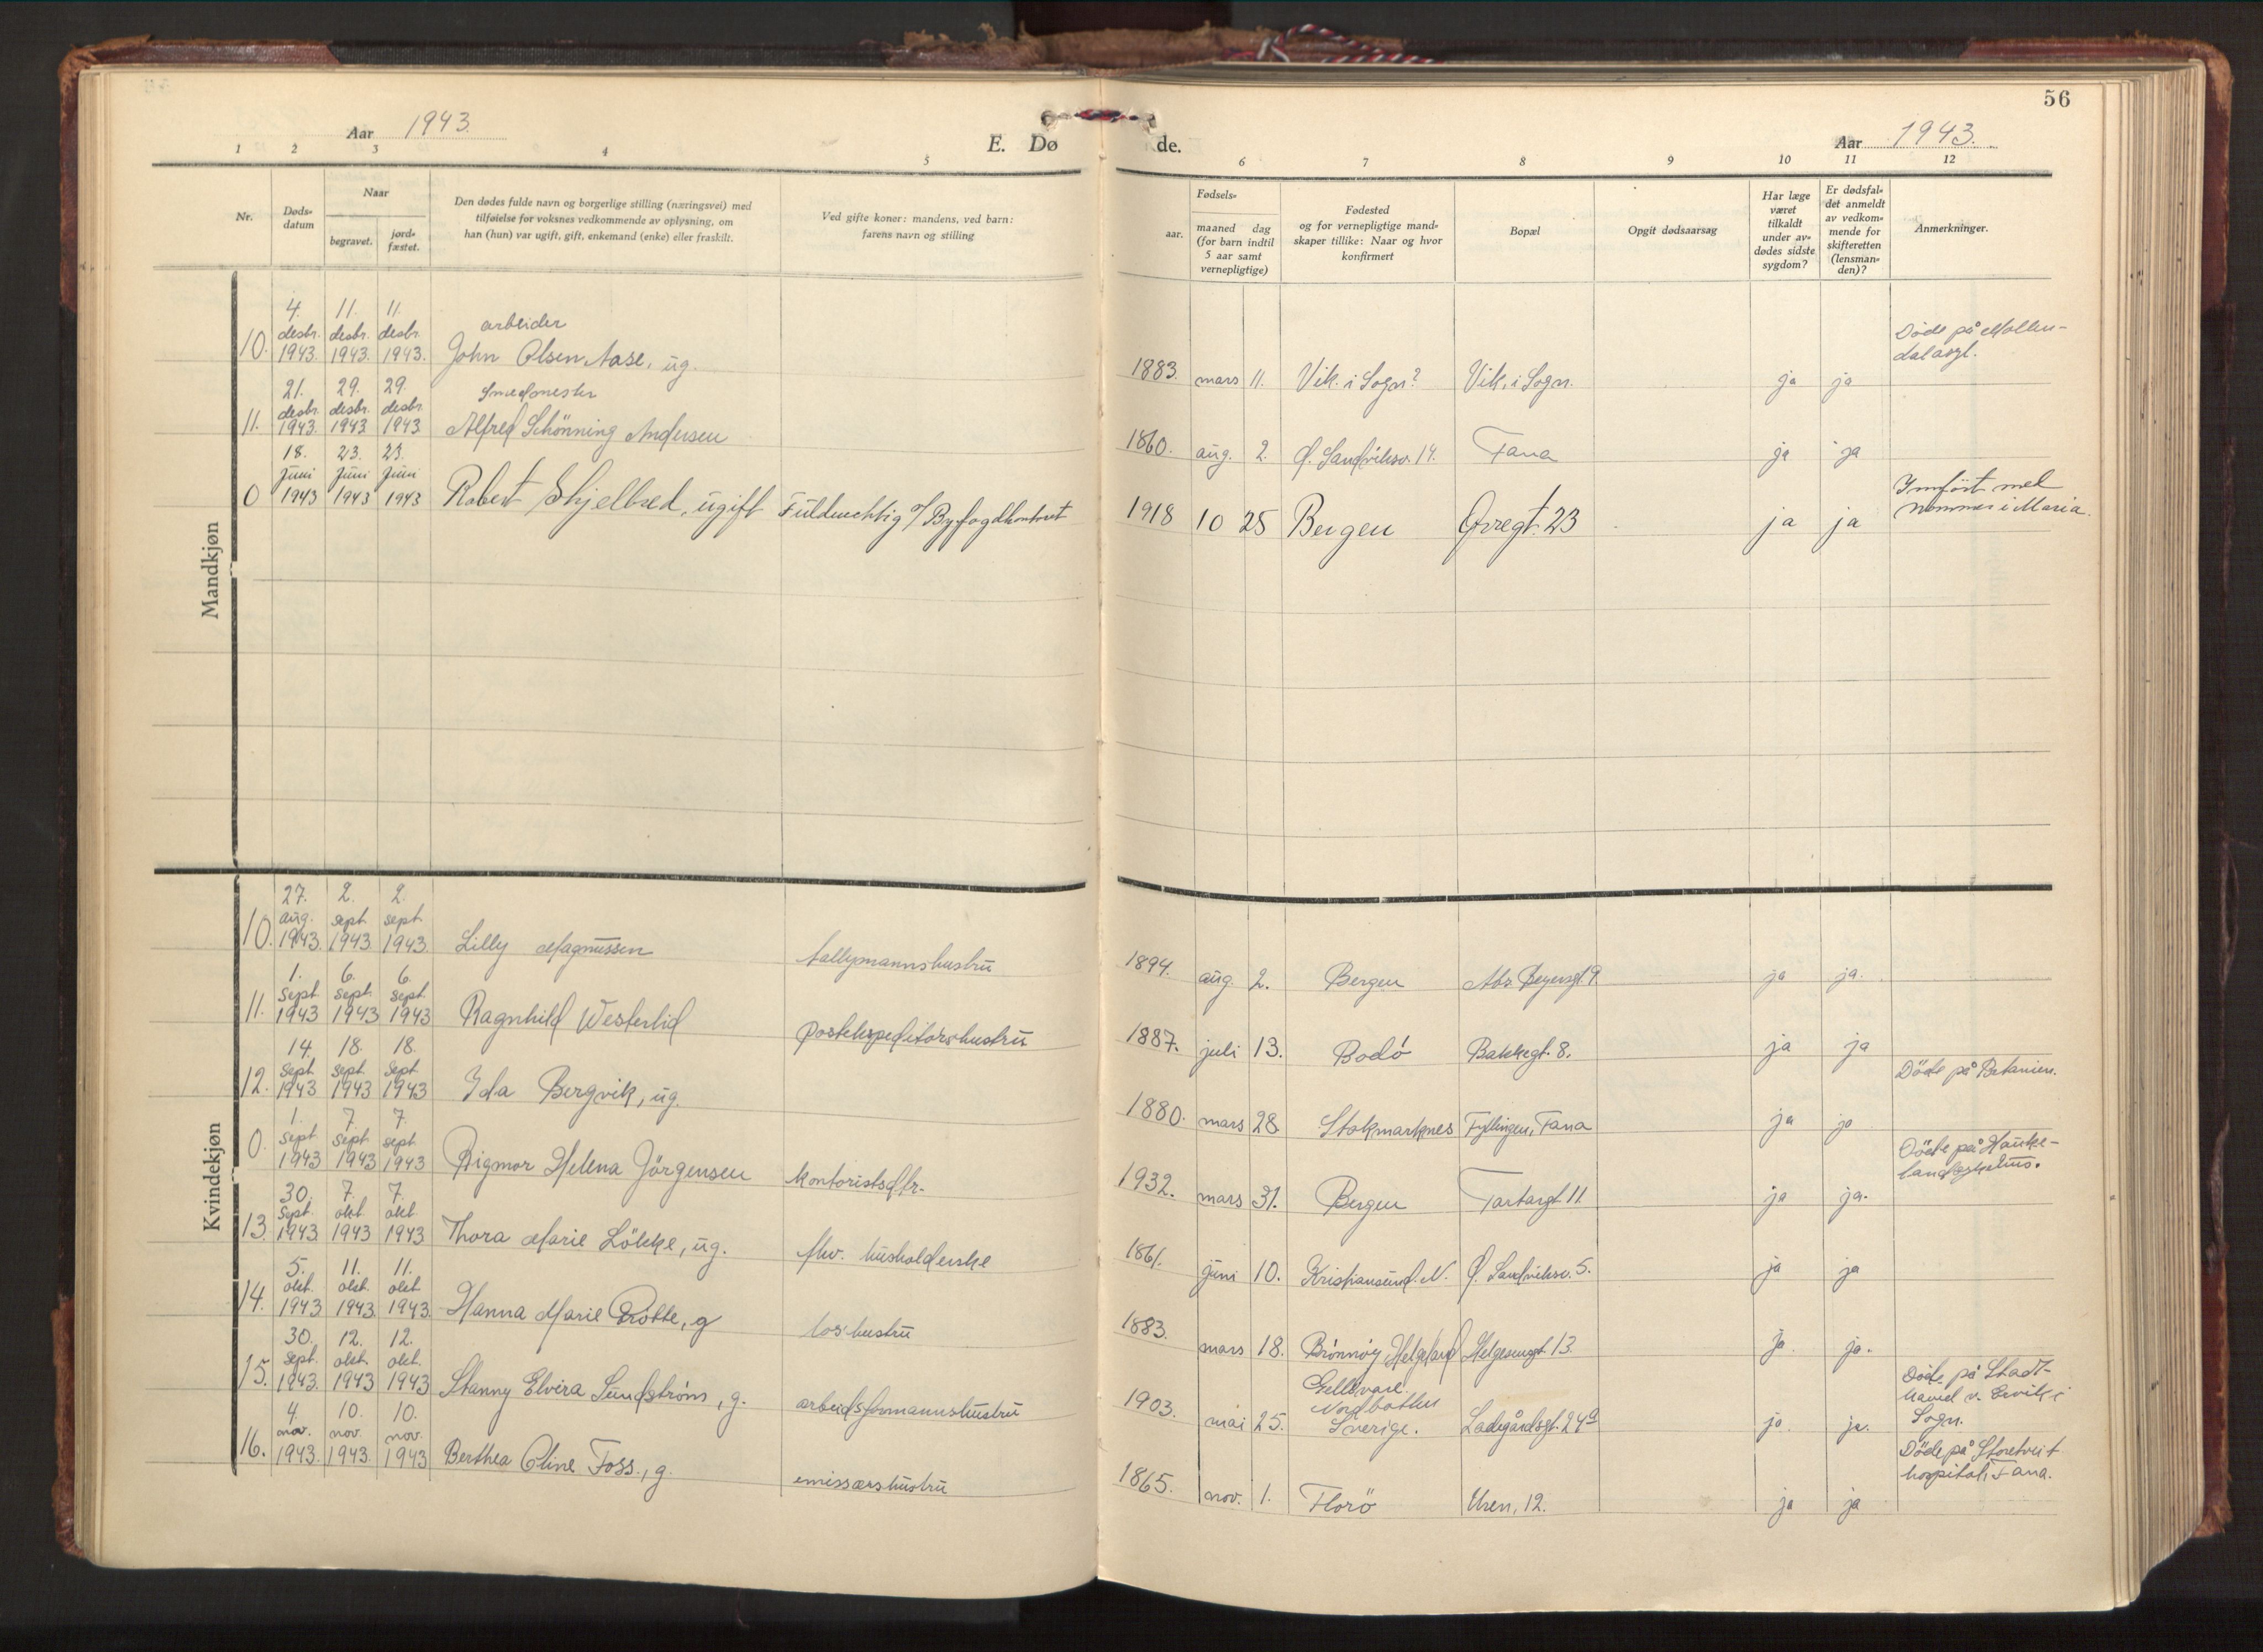 56
Aar 1943.
E. Dø de.
Aar 1943.
1 2 3 4 5 6 7 8 9 10 11 12
Nr.
Døds-
datum
Naar
begravet.
jord-
fæstet.
Den dødes fulde navn og borgerlige stilling (næringsvei) med
tilføielse for voksnes vedkommende av oplysning, om
han (hun) var ugift, gift, enkemand (enke) eller fraskilt.
Ved gifte koner: mandens, ved barn:
farens navn og stilling
Fødsels-
aar.
maaned dag
(for barn indtil
5 aar samt
vernepligtige)
Fødested
og for vernepligtige mand-
skaper tillike: Naar og hvor
konfirmert
Bopæl
Opgit dødsaarsag
Har læge
været
tilkaldt
under av-
dødes sidste
sygdom?
Er dødsfal-
det anmeldt
av vedkom-
mende for
skifteretten
(lensman-
den)?
Anmerkninger.
Mandkjøn
4. 11. 11. arbeider
desbr. desbr. desbr.
10. 1943. 1943. 1943. John Olsen Aase, ug.
1883. mars 11. Vik i Sogn? Vik i Sogn. ja ja
Døde på Møllen-
dalasyl.
21. 29. 29. Smedmester
desbr. desbr. desbr.
11. 1943. 1943 1943 Alfred Schönning Andersen
1860. aug. 2. Ø. Sandviksv. 14. Fana ja ja
18. 23. 23.
Juni Juni Juni
0 1943 1943 1943 Robert Skjelbred, ugift Fuldmektig v/ Byfogdkontoret
1918 10 25 Bergen Øvregt. 23 ja ja
Innført med
nummer i Maria.
Kvindekjøn
27. 2. 2.
aug. sept. sept.
10. 1943. 1943 1943. Lilly Magnussen tallymannshustru
1894. aug. 2. Bergen Abs. Beyersgt. 9 ja ja.
1. 6. 6.
sept. sept. sept.
11. 1943 1943 1943 Ragnhild Westerlid postekspeditørshustru
1887. juli 13. Bodó Bakkegt. 8. ja ja
14. 18. 18.
Sept. sept. sept
12. 1943 1943 1943 Ida Bergvik, ug.
1880. mars 28 Stokmarknes Fyllingen, Fana ja ja
Döde på Betanien.
1. 7. 7.
sept sept. sept.
0. 1943 1943 1943 Rigmor Helena Jörgensen kontoristsdtr.
1932. mars 31. Bergen Tartargt 11 ja ja.
Döde på Hauke-
30. 7. 7.
Sept. okt. okt.
13. 1943. 1943 1943 Thora Marie Lökke, ug. fhv. husholderske
1861. juni 10. Kristiansund. N. Ø. Sandviksv. 5. ja ja
5. 11. 11.
okt. okt. okt.
14. 1943 1943 1943. Hanna Marie Gröbbe, g loshustru
1883. mars 18. Brönnöy, Helgeland Helgesensgt. 13. ja. ja.
30. 12. 12.
Sept. okt. okt.
15. 1943. 1943 1943 Stanny Elvira Sundström, g. arbeidsformannshustru
1903. mai 25. Gellivare.
Nordbotten
Sverige. Ladegårdsgt. 24a ja. ja.
Döde på Stadt-
havet v. Ervik i
Sogn.
4. 10. 10.
nov. nov. nov.
16. 1943. 1943. 1943 Berthea Oline Foss., g. emissærshustru
1865. nov. 1. Florö Uren, 12. ja ja
Döde på Storetveit
hospital, Fana.